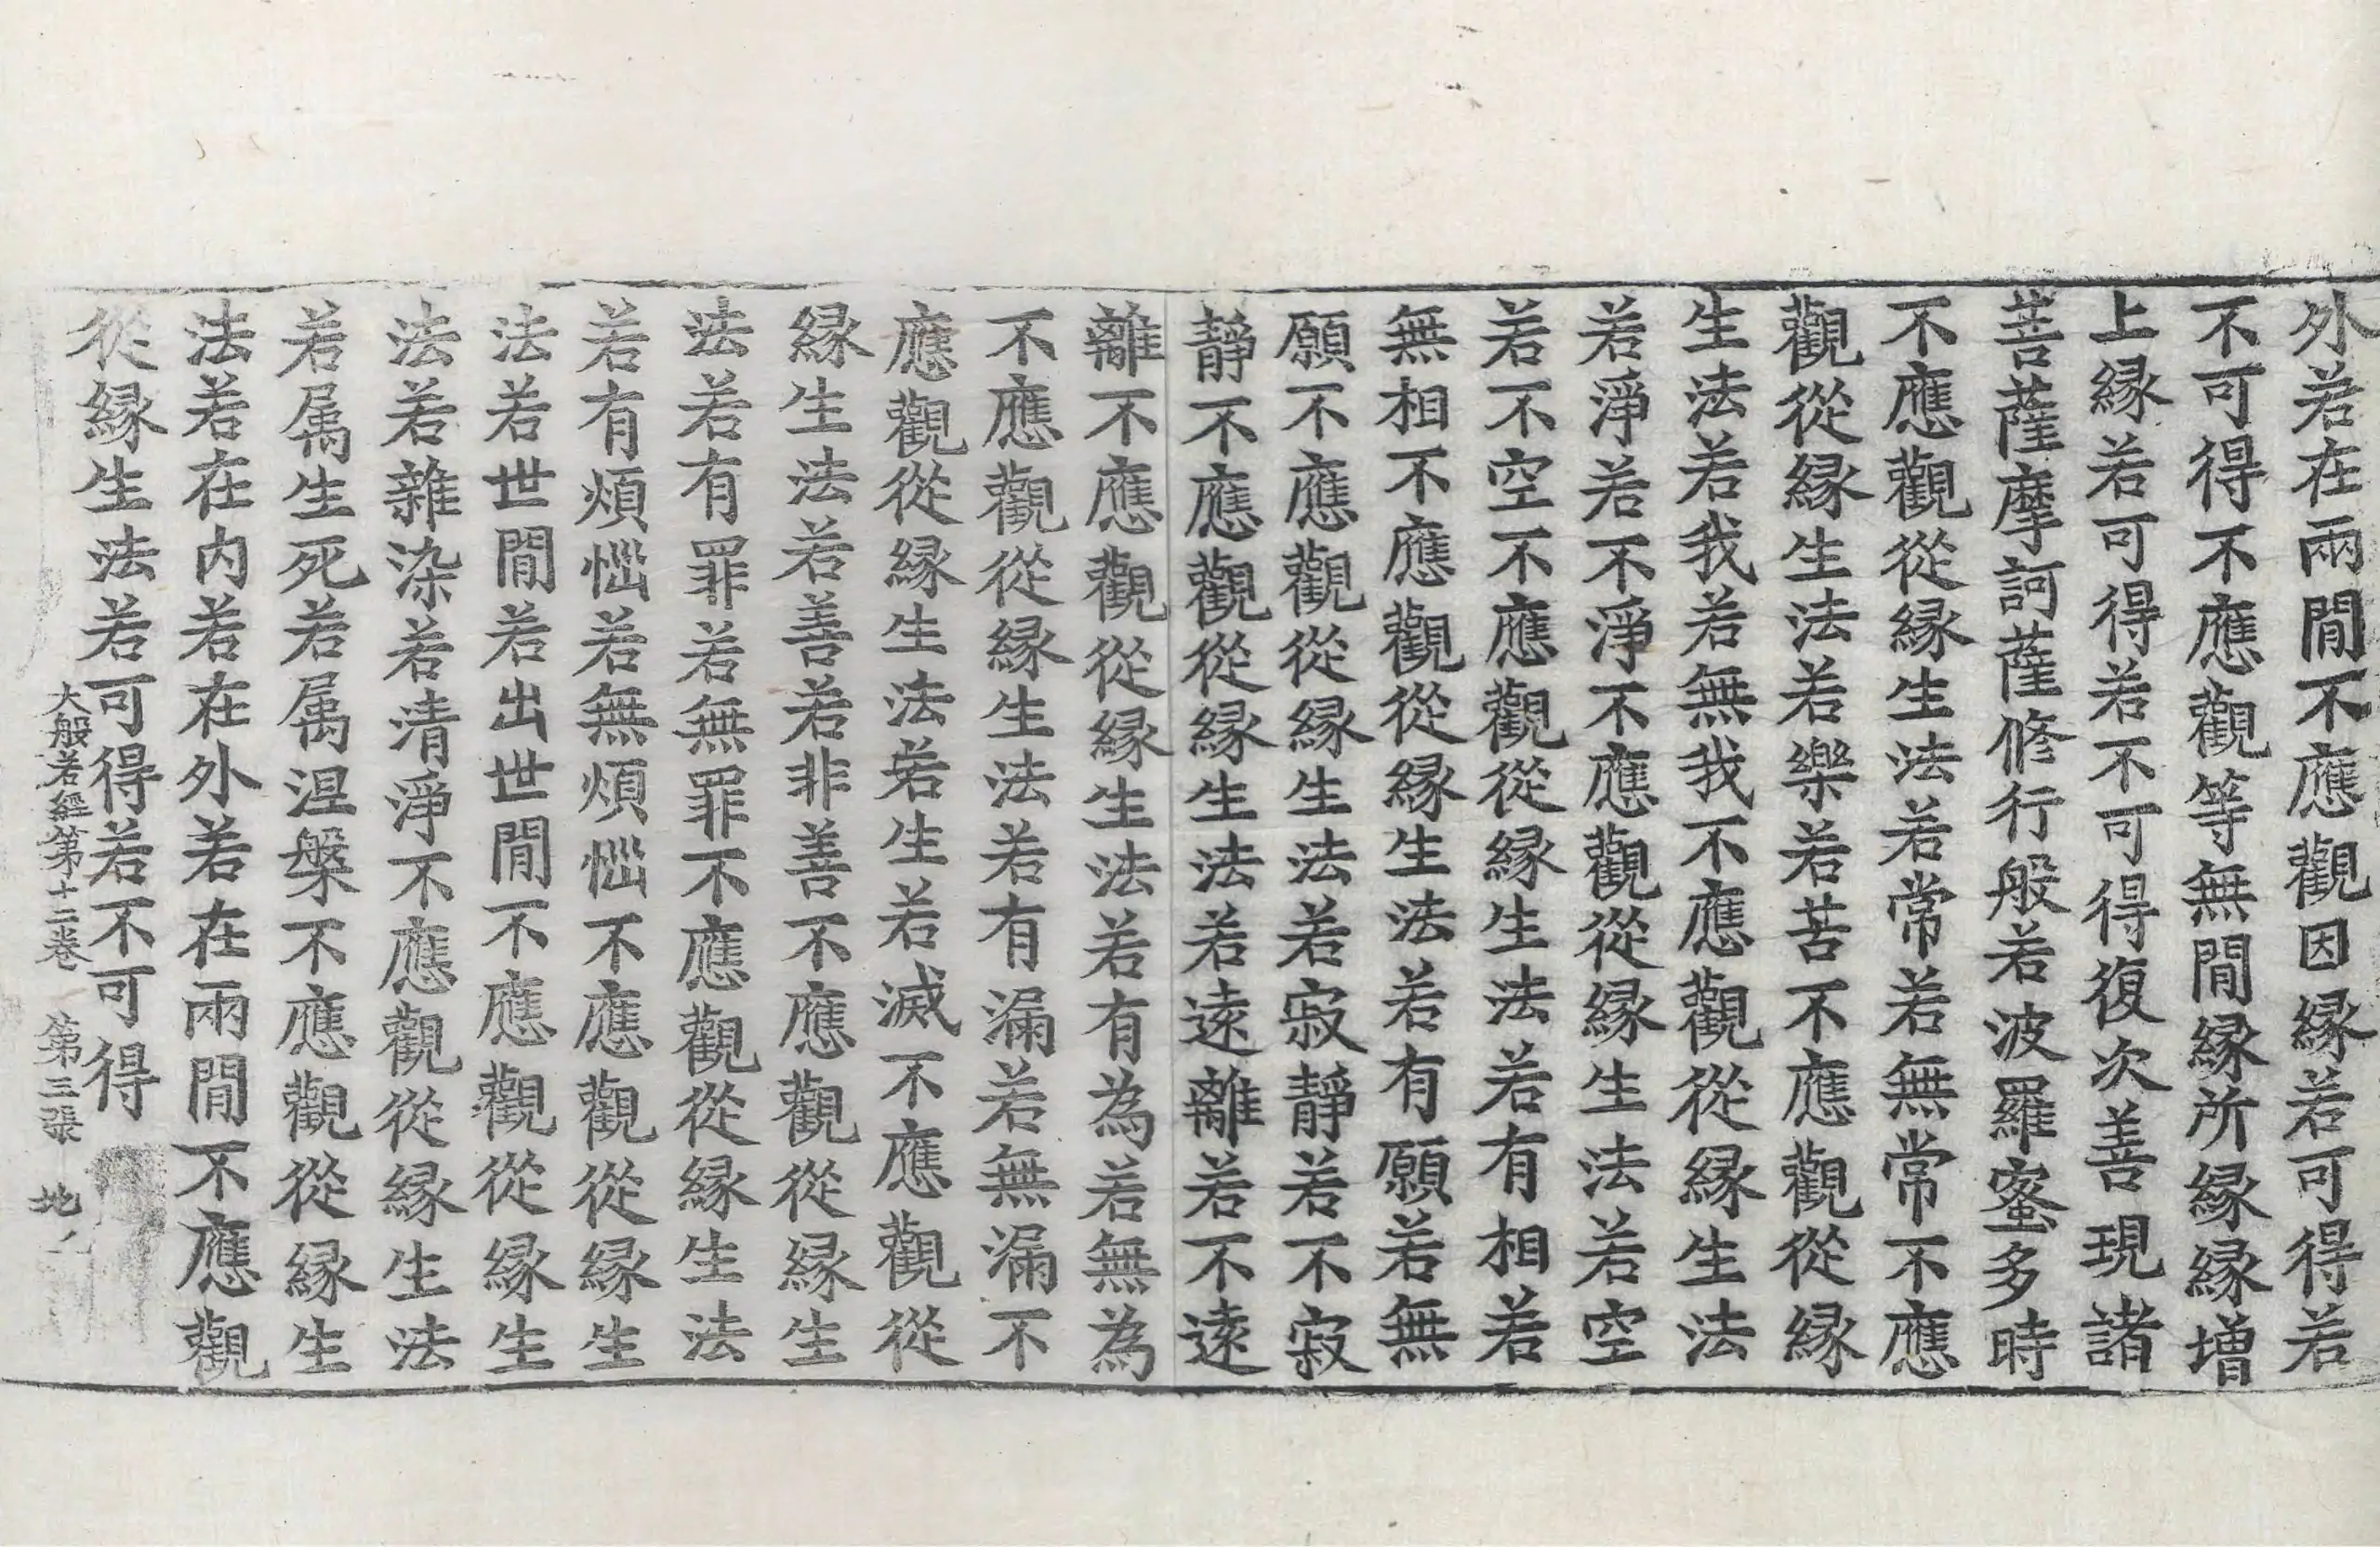 外若在兩間不應觀因緣若可得若
不可得不應觀等無間緣所緣緣增
上緣若可得若不可得復次善現諸
菩薩摩訶薩修行般若波羅蜜多時
不應觀從緣生法若常若無常不應
觀從緣生法若樂若苦不應觀從緣
生法若我若無我不應觀從緣生法
若淨若不淨不應觀從緣生法若空
若不空不應觀從緣生法若有相若
無相不應觀從緣生法若有願若無
願不應觀從緣生法若寂靜若不寂
靜不應觀從緣生法若遠離若不遠
離不應觀從緣生法若有為若無為
不應觀從緣生法若有漏若無漏不
應觀從緣生法若生若滅不應觀從
緣生法若善若非善不應觀從緣生
法若有罪若無罪不應觀從緣生法
若有煩惱若無煩惱不應觀從緣生
法若世間若出世間不應觀從緣生
法若雜染若清淨不應觀從緣生法
若属生死若属涅槃不應觀從緣生
法若在内若在外若在兩間不應觀
從緣生法若可得若不可得
大般若經第十二卷 第三張 地